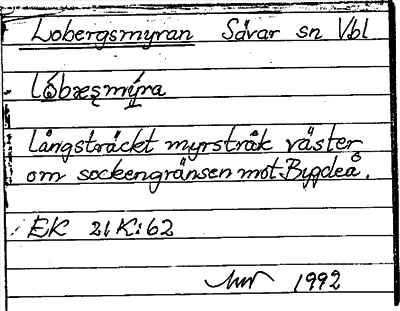 Lobergsmyran Sävar sn Vbl
Långsträckt myrstråk väster
om sockengränsen mot Bygdeå.
EK 21 K:62
1992